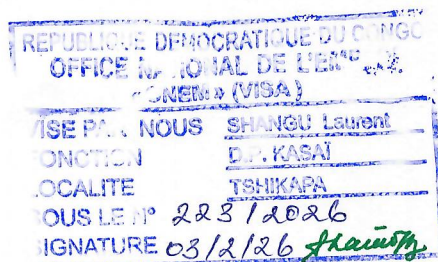 REPUBLIQUE DEMOCRATIQUE DU CONGO
OFFICE NATIONAL DE L'EM
"ONEM" (VISA)
VISE PAR NOUS SHANGU Laurent
FONCTION D.P. KASAÏ
LOCALITE TSHIKAPA
SOUS LE N° 223/2026
SIGNATURE 03/2/26